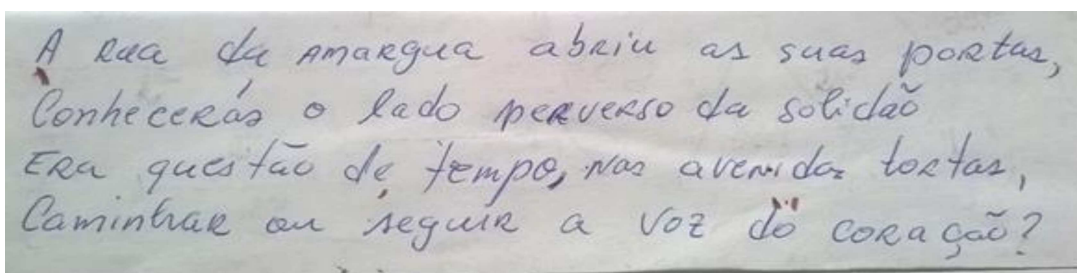 A Rua da Amargua abriu as suas portas,
Conhecerás o lado perverso da solidão
Era questão de tempo, nas avenidas tortas,
Caminhar ou seguir a voz do coração?